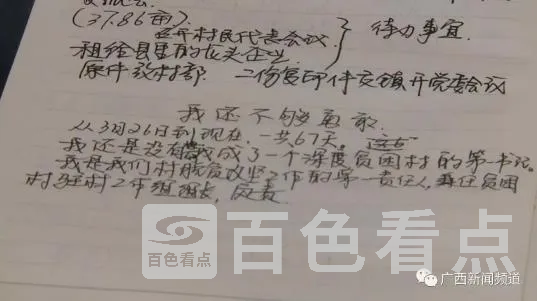 (37.86亩).
召开村民代表会议
租给县里的龙头企业
待办事宜
原件放村部 二份复印件交镇开党委会议
我还不够勇敢.
从3月26日到现在,一共67天。这
我还是没有 我成了一个深度贫困村的第一书记。
我是我们村脱贫攻坚工作的第一责任人,兼任贫困
村驻村工作组组长,
百色看点
百色看点
广西新闻频道